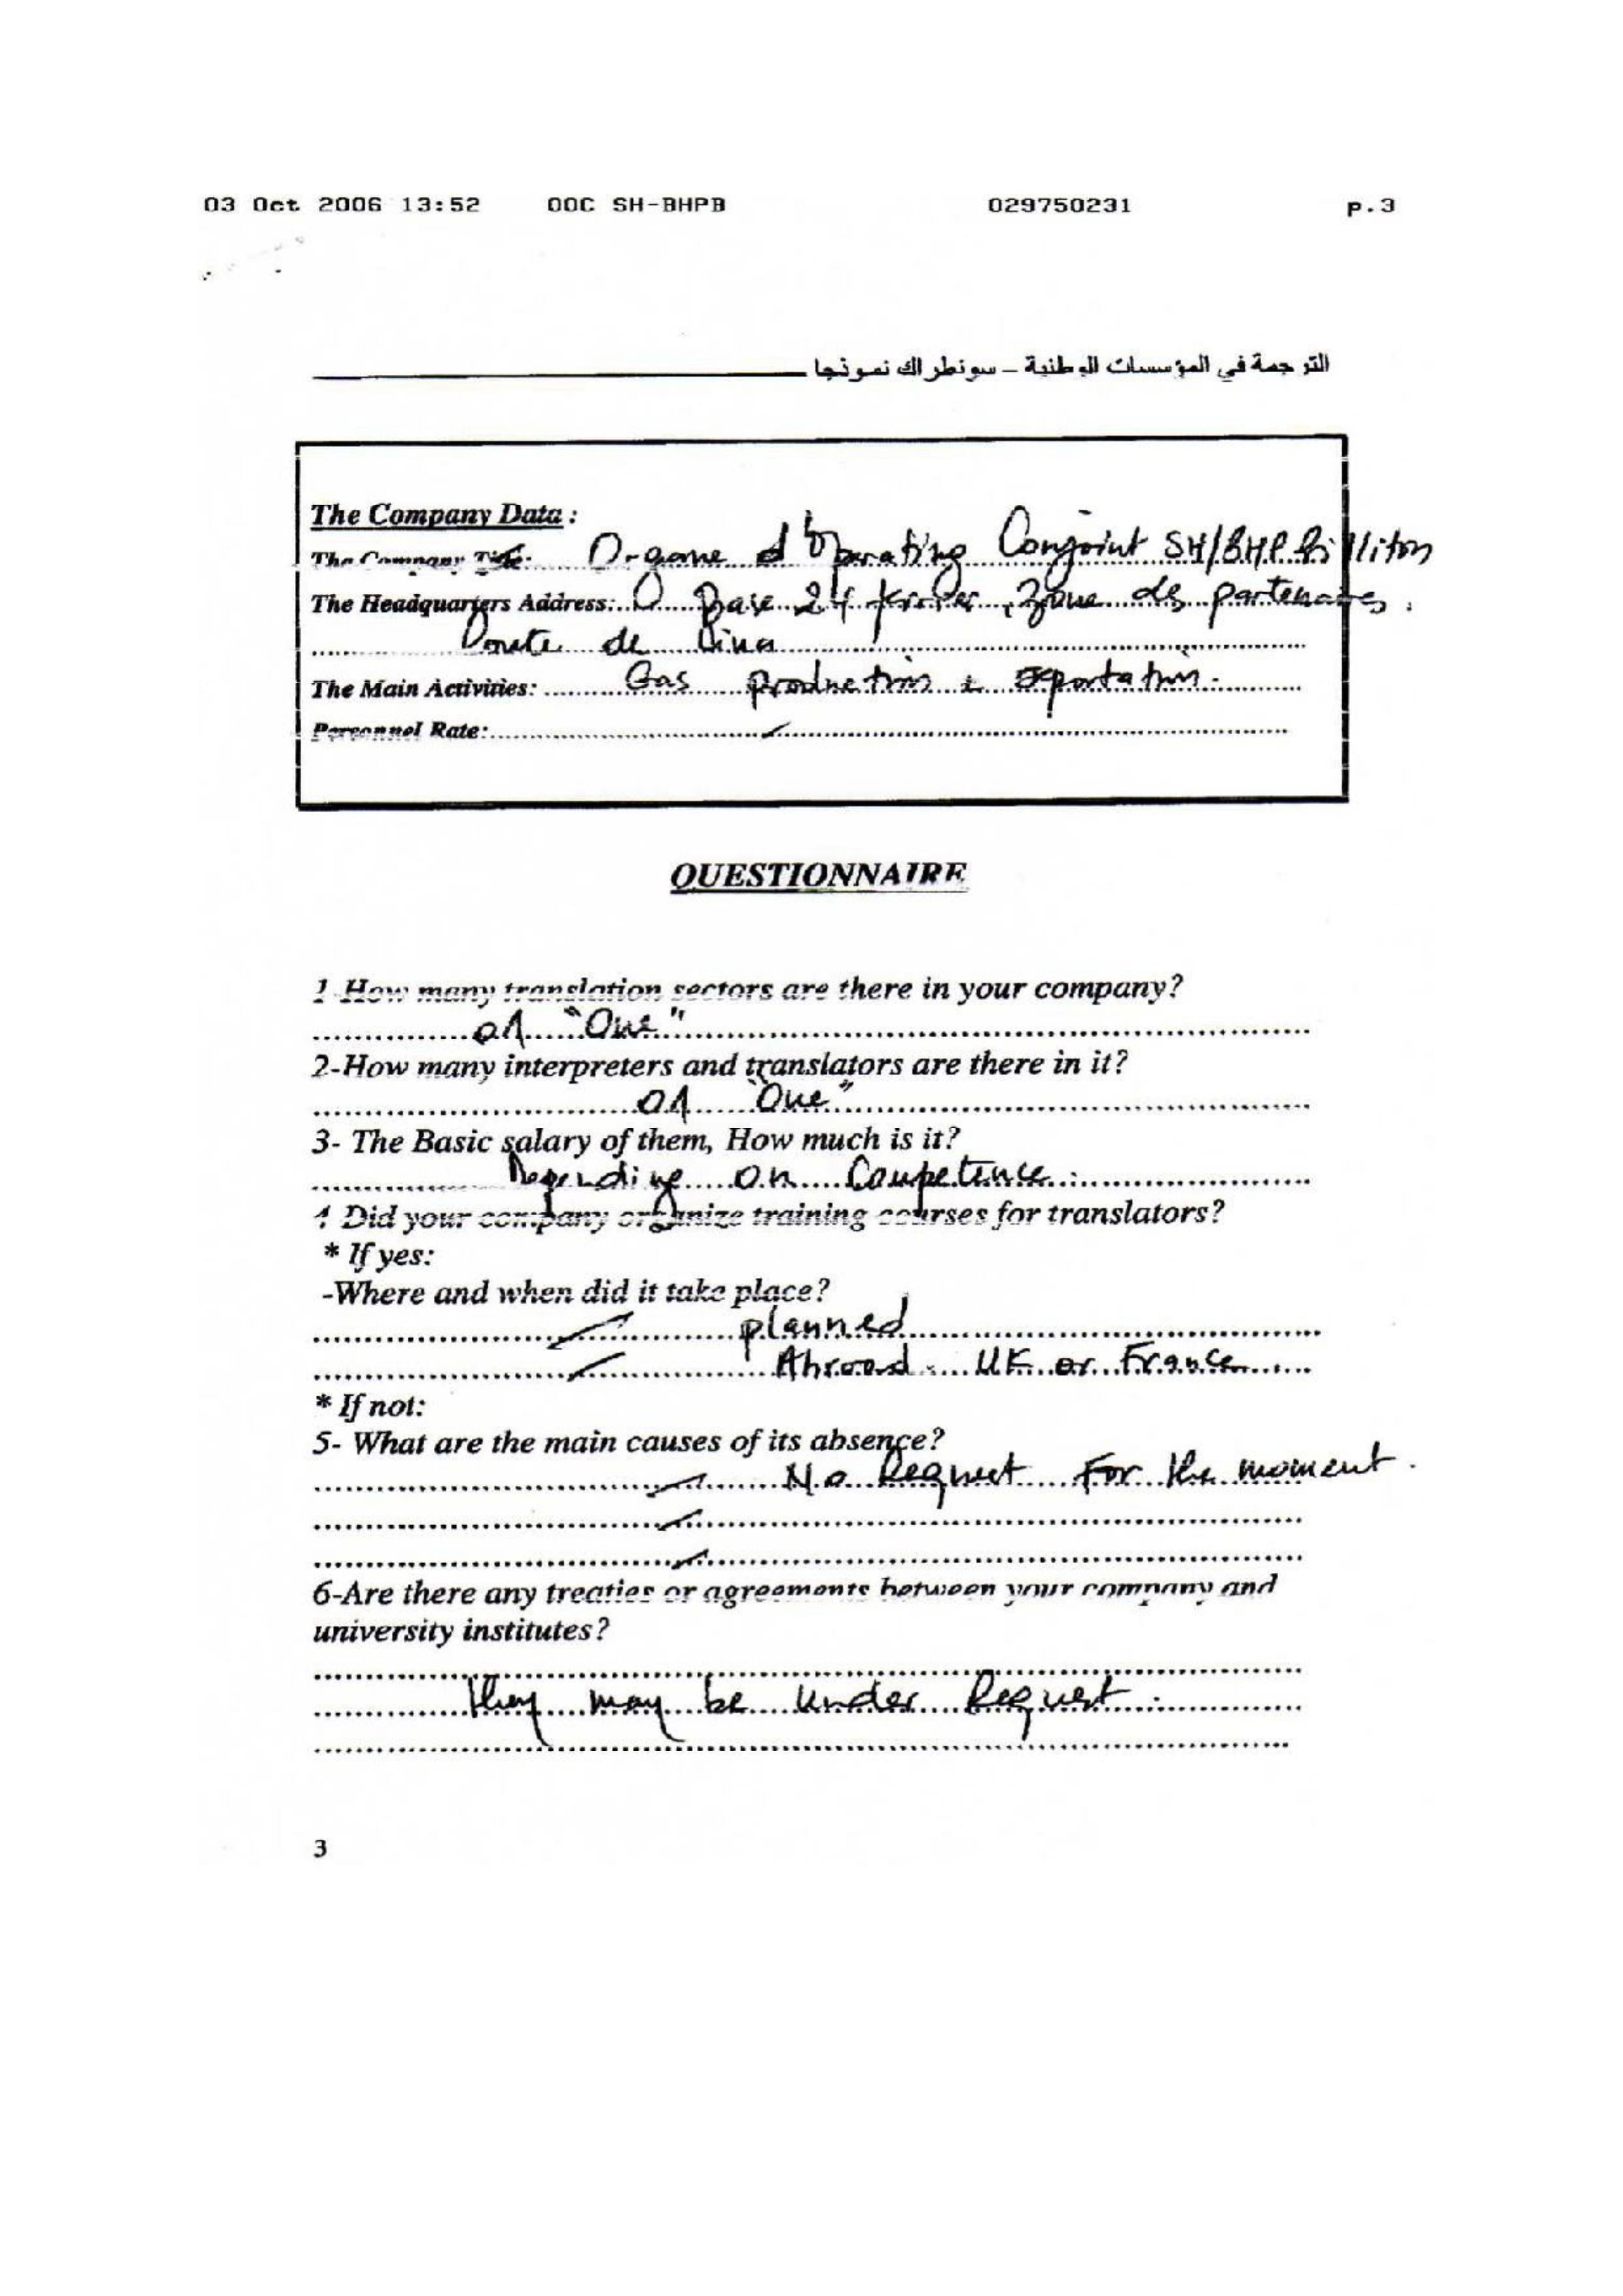 03 Oct 2006 13:52 OOC SH-BHPB 029750231 p.3
الترجمة في المؤسسات الوطنية – سونطراك نموذجا
The Company Data :
The Company Title: Organe d'Operating Conjoint SH/BHP Billiton
The Headquarters Address: Base 24 février, Zone des partenaires.
Route de
The Main Activities: Gas production & Exportation.
Personnel Rate:
QUESTIONNAIRE
1-How many translation sectors are there in your company?
01 "One"
2-How many interpreters and translators are there in it?
01 "One"
3- The Basic salary of them, How much is it?
Depending on Competence.
4 Did your company organize training courses for translators?
* If yes:
-Where and when did it take place?
planned
Abroad. UK or France
* If not:
5- What are the main causes of its absence?
No Request For the moment.
6-Are there any treaties or agreements between your company and
university institutes?
They may be under Request.
3